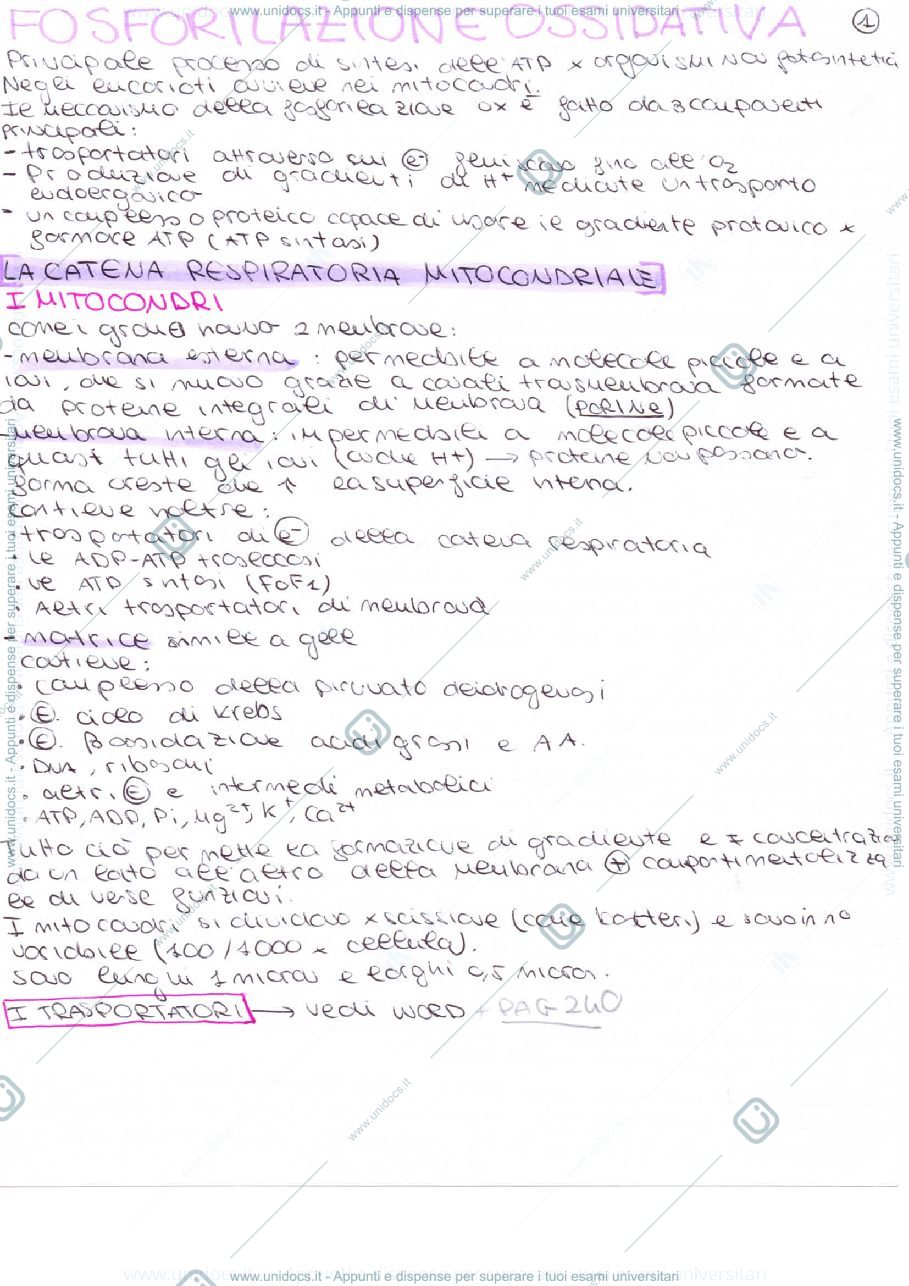 www.unidocs.it - Appunti e dispense per superare i tuoi esami universitari
FOSFORILAZIONE OSSIDATIVA 1
Principale processo di sintesi dell'ATP x organismi non fotosintetici
Negli eucarioti avviene nei mitocondri.
Il meccanismo della fosforilazione ox è fatto da 3 componenti
principali:
- trasportatori attraverso cui e- fluiscono fino all'O2
- Produzione di gradienti di H+ mediante un trasporto
endoergonico
- un complesso proteico capace di usare il gradiente protonico x
formare ATP (ATP sintasi)
LA CATENA RESPIRATORIA MITOCONDRIALE
I MITOCONDRI
come i gram hanno 2 membrane:
- membrana esterna : permeabile a molecole piccole e a
ioni, che si muovono grazie a canali transmembrana formate
da proteine integrali di membrana (PORINE)
membrana interna: impermeabile a molecole piccole e a
quasi tutti gli ioni (anche H+) → proteine non passano.
forma creste che ↑ la superficie interna.
Contiene inoltre:
trasportatori di e- della catena respiratoria
• le ADP-ATP traslocasi
• le ATP sintasi (FoF1)
• Altri trasportatori di membrana
- matrice simile a gel
contiene:
• complesso della piruvato deidrogenasi
• E. ciclo di Krebs
• E. β ossidazione acidi grassi e AA.
• DNA, ribosomi
• altri E e intermedi metabolici
• ATP, ADP, Pi, Mg2+, K+, Ca2+
Tutto ciò permette la formazione di gradiente e ≠ concentrazioni
da un lato all'altro della membrana + compartimentalizza
le diverse funzioni.
I mitocondri si dividono x scissione (come batteri) e sono in no
variabile (100/1000 x cellula).
Sono lunghi 1 micron e larghi 0,5 micron.
I TRASPORTATORI → vedi WORD + PAG 240
www.unidocs.it - Appunti e dispense per superare i tuoi esami universitari